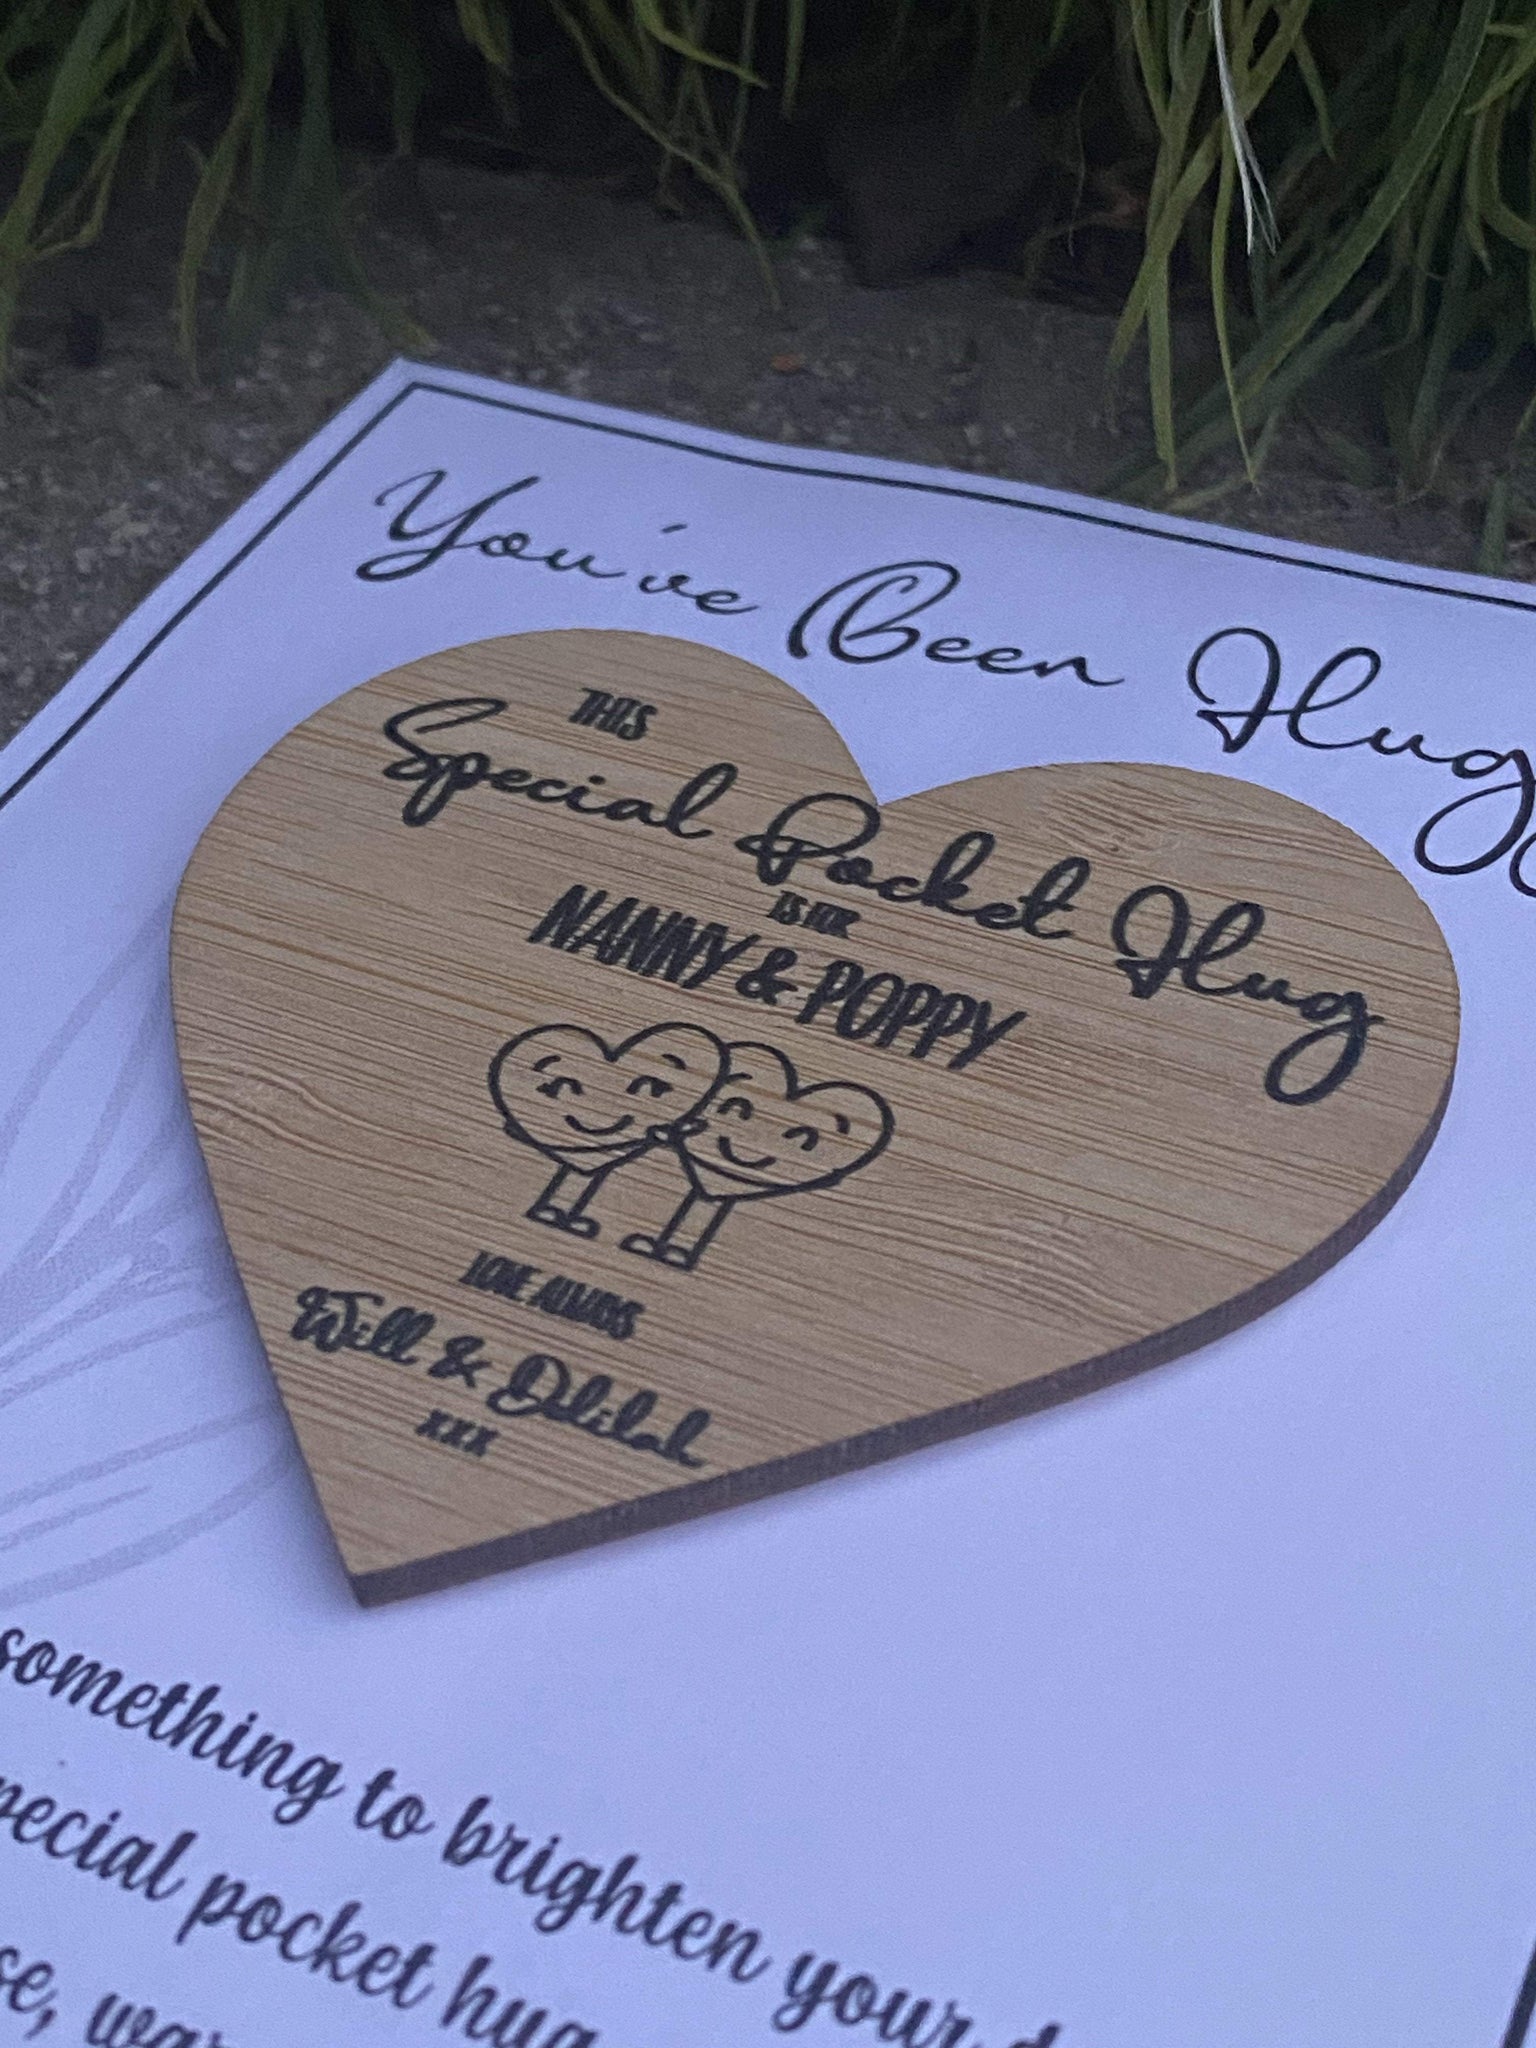 You've Been Hug
THIS
Special Pocket Hug
IS FOR
NANNY & POPPY
LOVE ALWAYS
Will & Delilah
xxx
something to brighten your
pecial pocket hug